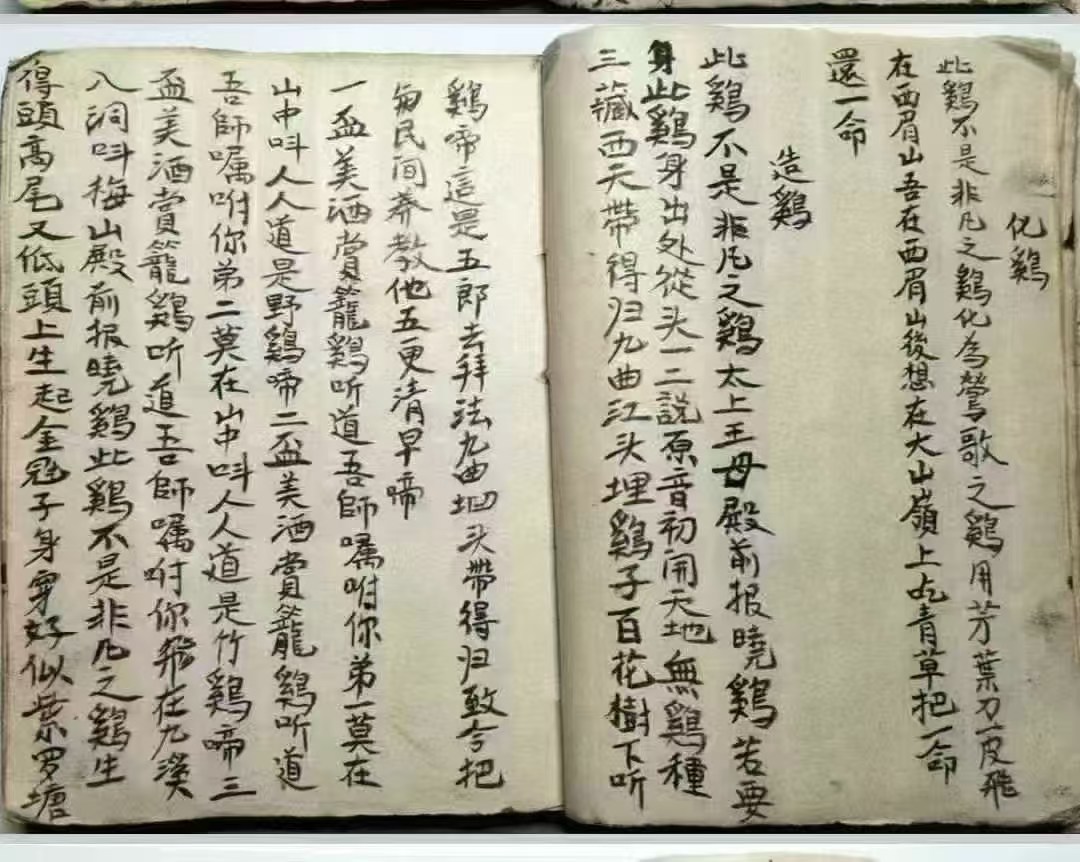 化鷄
此鷄不是非凡之鷄化為鶯歌之鷄用芳葉刀一皮飛
在西眉山吾在西眉山後想在大山嶺上吃青草把一命
還一命
造鷄
此鷄不是非凡之鷄太上王母殿前报曉鷄若要
身此鷄身出处從头一二説原音初開天地無鷄種
三藏西天帶得归九曲江头埋鷄子百花樹下听
鷄啼這是五郎去拜法九曲坳头帶得归致今把
匆民间养教他五更清早啼
一盃美酒賞籠鷄听道吾師嘱咐你第一莫在
山中呌人人道是野鷄啼二盃美酒賞籠鷄听道
吾師嘱咐你第二莫在山中呌人人道是竹鷄啼三
盃美酒賞籠鷄听道吾師嘱咐你飛在九溪
八洞呌梅山殿前报曉鷄此鷄不是非凡之鷄生
得頭高尾又低頭上生起金冠子身穿好似紫罗塘